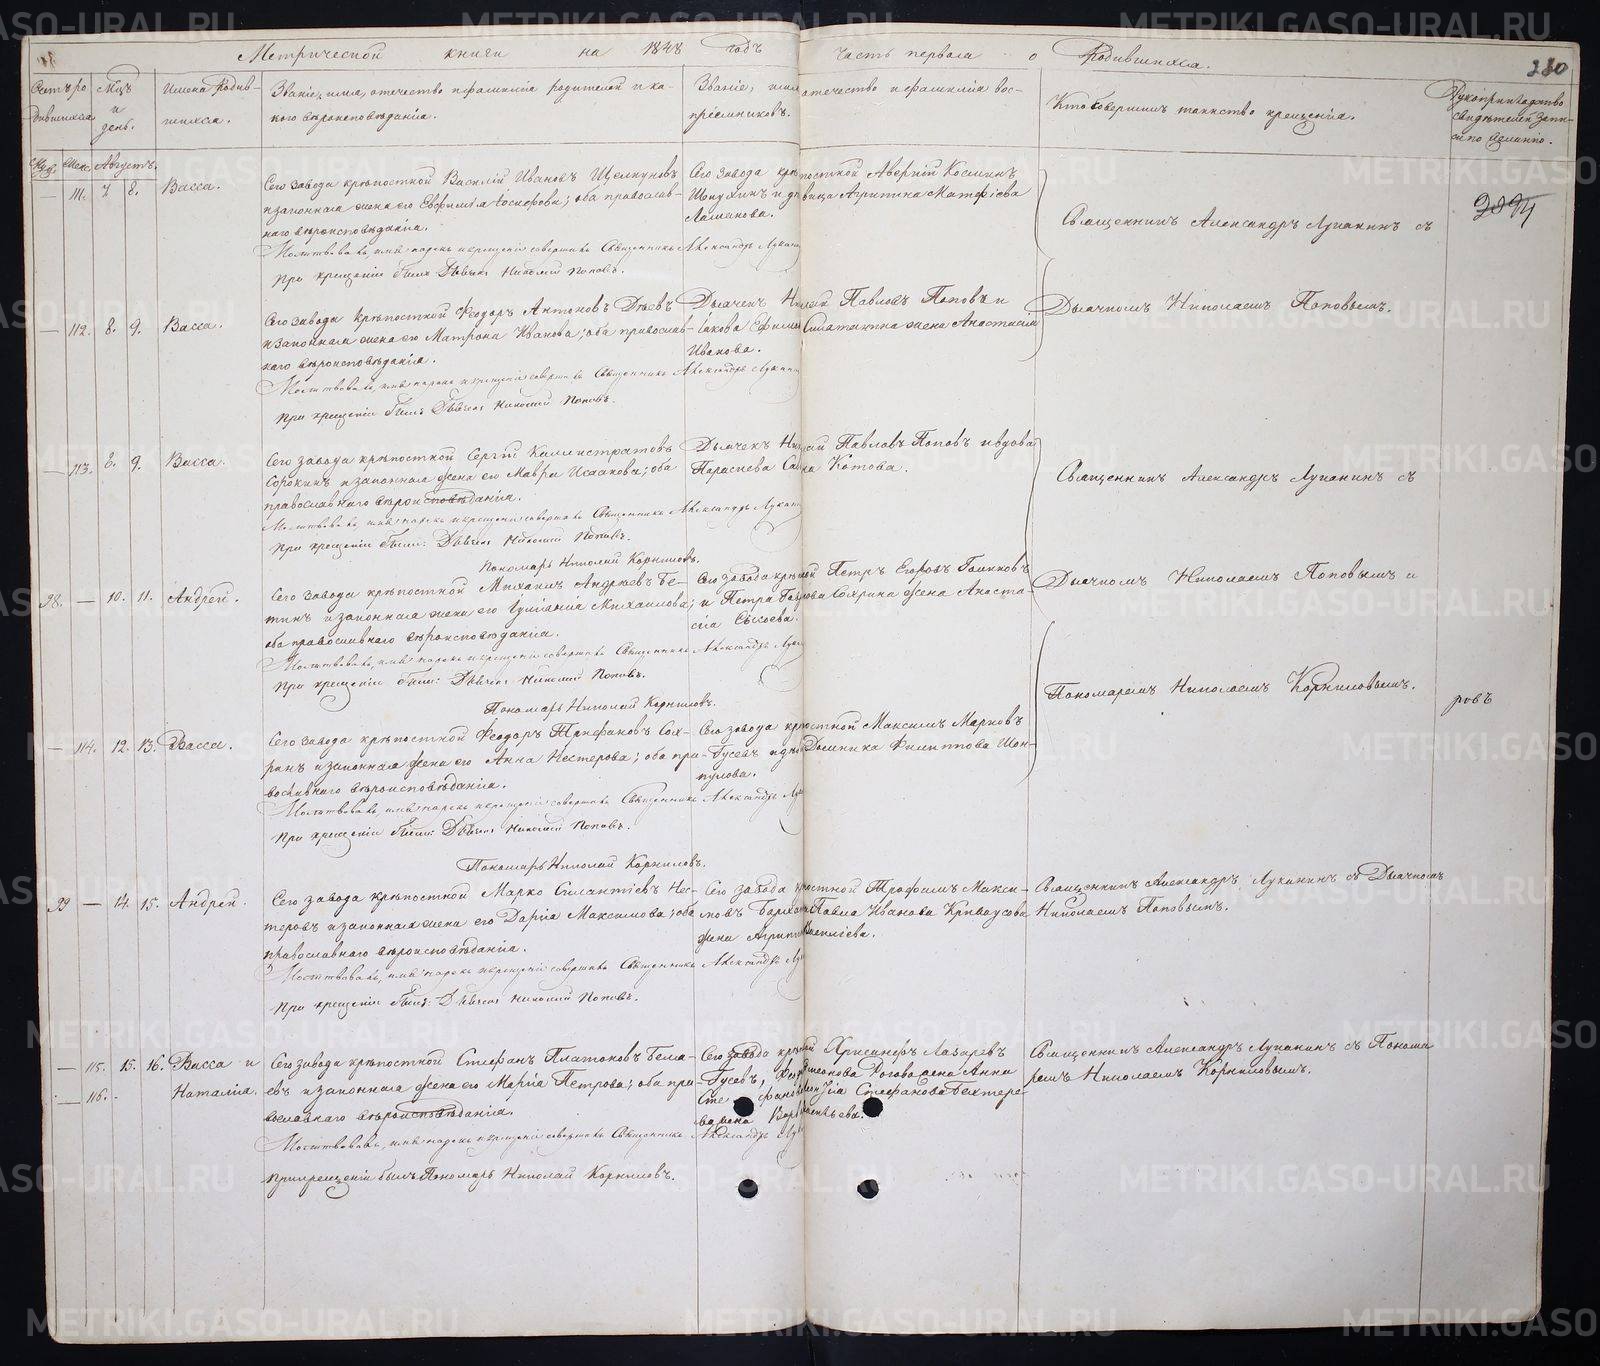 Метрической книги на 1848 годъ часть первая о Родившихся.
280
Счетъ родившихся
Мѣц. и день.
Имена родившихся.
Званіе, имя, отечество и фамилія родителей и какого вѣроисповѣданія.
Званіе, имя, отечество и фамилія воспріемниковъ.
Кто совершилъ таинство крещенія.
Рукоприкладство свидѣтелей записи по желанію.
Муж. Жен. Августъ.
— 111. 7 8. Васса.
Сего завода крѣпостной Василій Ивановъ Щелкуновъ
и законная жена его Евфимія Іосифова; оба православ-
наго вѣроисповѣданія.
Сего завода крѣпостной Аверкій Косминъ
и дѣвица Агрипина Матфіева
Молитвовалъ, имя нарекъ и крещеніе совершалъ Священникъ Александръ
При крещеніи былъ Дьячекъ Николай Поповъ.
Священникъ Александръ Луканинъ съ
Дьячкомъ Николаемъ Поповымъ.
2094
— 112. 8. 9. Васса.
Сего завода крѣпостной Феодоръ Антоновъ
и законная жена его Матрона Иванова; оба православ-
наго вѣроисповѣданія.
Дьячекъ Николай Павловъ Поповъ и
Іакова жена Анастасія
Иванова.
Молитвовалъ, имя нарекъ и крещеніе совершалъ Священникъ Александръ
При крещеніи былъ Дьячекъ Николай Поповъ.
— 113. 8. 9. Васса.
Сего завода крѣпостной Сергій Каллистратовъ
Сорокинъ и законная жена его Мавра Исаакова; оба
православнаго вѣроисповѣданія.
Дьячекъ Николай Павловъ Поповъ и вдова
Параскева Котова.
Молитвовалъ, имя нарекъ и крещеніе совершалъ Священникъ Александръ
При крещеніи были: Дьячекъ Николай Поповъ.
Пономарь Николай Корниловъ.
Священникъ Александръ Луканинъ съ
Дьячкомъ Николаемъ Поповымъ и
Пономаремъ Николаемъ Корниловымъ.
98. — 10. 11. Андрей.
Сего завода крѣпостной Михаилъ Андреевъ Бе-
тинъ и законная жена его Іуліанія Михаилова;
оба православнаго вѣроисповѣданія.
Сего завода крѣпостной Петръ Егоровъ Голиковъ
и Петра жена Анаста-
сія Сысоева.
Молитвовалъ, имя нарекъ и крещеніе совершалъ Священникъ Александръ
При крещеніи были: Дьячекъ Николай Поповъ.
Пономарь Николай Корниловъ.
ровъ
— 114. 12. 13. Васса.
Сего завода крѣпостной Феодоръ Трифановъ Сох-
ринъ и законная жена его Анна Нестерова; оба пра-
вославнаго вѣроисповѣданія.
Сего завода крѣпостной Максимъ Марковъ
Гусевъ и Домника Филиппова Шон-
пулова.
Молитвовалъ, имя нарекъ и крещеніе совершалъ Священникъ Александръ
При крещеніи были: Дьячекъ Николай Поповъ.
Пономарь Николай Корниловъ.
99 — 14. 15. Андрей.
Сего завода крѣпостной Марко Силантіевъ Нес-
теровъ и законная жена его Дарія Максимова; оба
православнаго вѣроисповѣданія.
Сего завода крѣпостной Трофимъ Макси-
мовъ Павла Иванова Кривоусова
жена Агрипина Василіева.
Священникъ Александръ Луканинъ съ Дьячкомъ
Николаемъ Поповымъ.
Молитвовалъ, имя нарекъ и крещеніе совершалъ Священникъ Александръ
При крещеніи былъ: Дьячекъ Николай Поповъ.
— 115. 15. 16. Васса и
— 116. Наталія.
Сего завода крѣпостной Стефанъ Платоновъ Беля-
евъ и законная жена его Марія Петрова; оба пра-
вославнаго вѣроисповѣданія.
Сего завода крѣпостной Хрисанфъ Лазаревъ
Гусевъ, жена Анна
Стефанова Стефанова Бехтере-
ва жена
Священникъ Александръ Луканинъ съ Понома
ремъ Николаемъ Корниловымъ.
Молитвовалъ, имя нарекъ и крещеніе совершалъ Священникъ Александръ
При крещеніи былъ Пономарь Николай Корниловъ.
METRIKI.GASO-URAL.RU